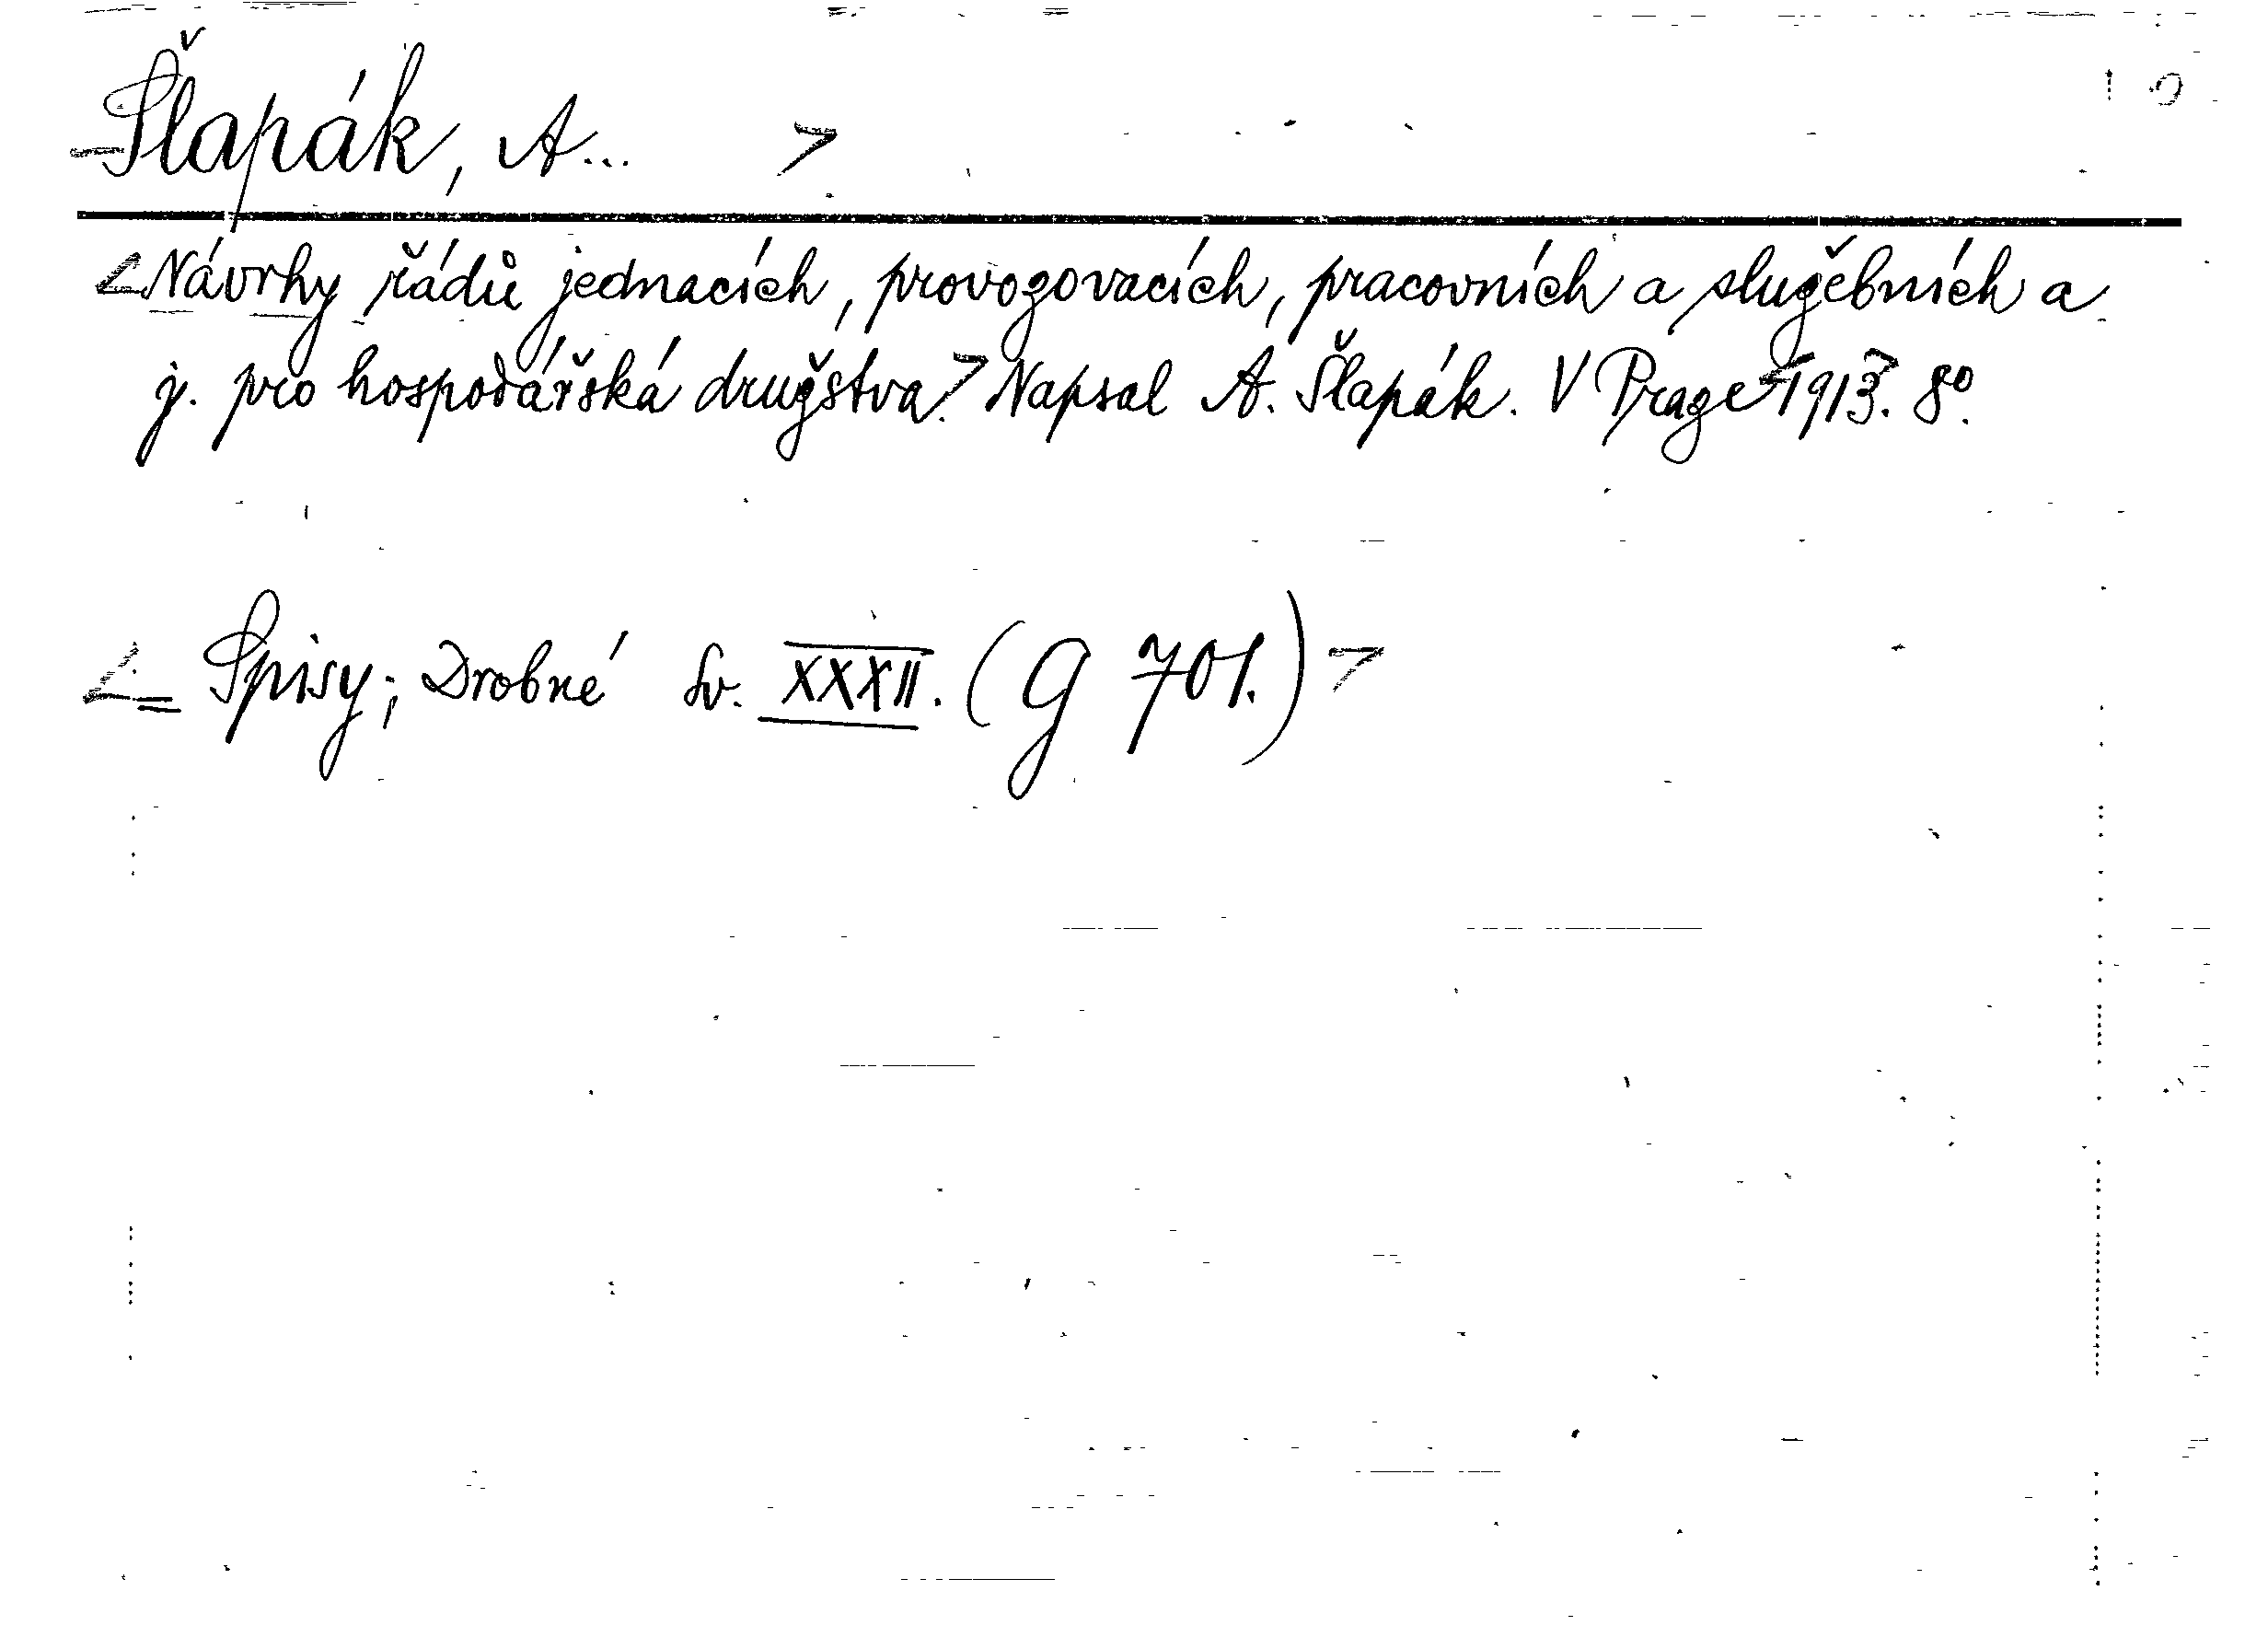 Šlapák, A...
Návrhy řádů jednacích, provozovacích, pracovních a služebních a
j. pro hospodářská družstva. Napsal A. Šlapák. V Praze 1913. 8°.
= Spisy; Drobné Sv. XXXII. (G 701.)